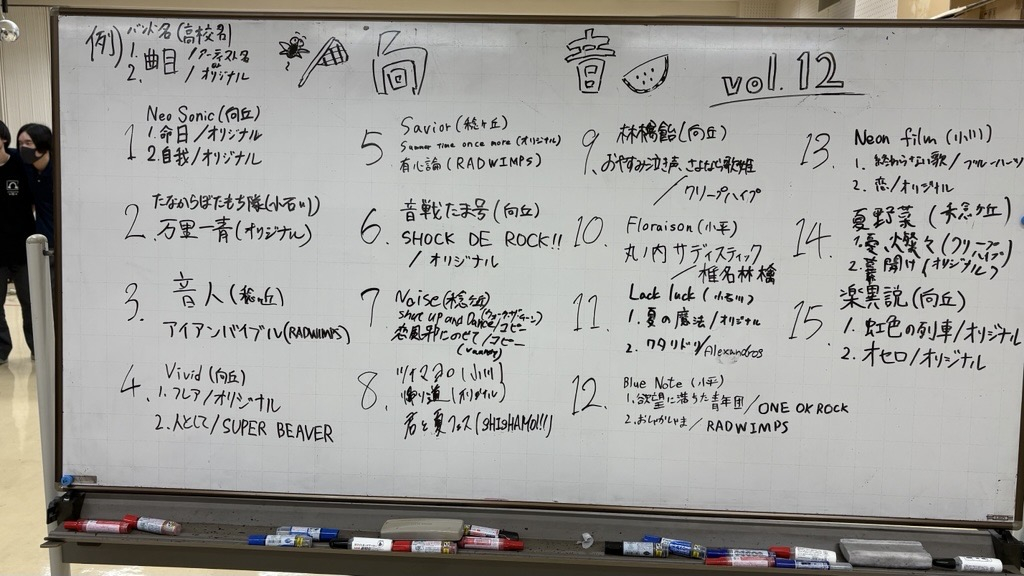 例) バンド名(高校名)
1. 曲目 / アーティスト名
2. / オリジナル
向 音 vol.12
1 Neo Sonic (向丘)
1. 命日/オリジナル
2. 自我/オリジナル
2. たなからぼたもち隊(小石川)
万里一青(オリジナル)
3. 音人(稔ヶ丘)
アイアンバイブル(RADWIMPS)
4. Vivid (向丘)
1. フレア/オリジナル
2. 人として/SUPER BEAVER
5 Savior (稔ヶ丘)
Summer time once more (オリジナル)
有心論 (RADWIMPS)
6. 音戦たま号(向丘)
SHOCK DE ROCK!!
/ オリジナル
7 Noise (稔ヶ丘)
shut up and Dance/(ウォーク・ザ・ムーン)
恋風邪にのせて/コピー
(vaundy)
8. (小川)
帰り道(オリジナル)
君と夏フェス(SHISHAMO!!!)
9. 林檎飴(向丘)
おやすみ泣き声、さよなら歌姫
/クリープハイプ
10. Floraison (小平)
丸ノ内サディスティック
/椎名林檎
11. Lack luck (小石川)
1. 夏の魔法/オリジナル
2. ワタリドリ/Alexandros
12. Blue Note (小平)
1. 欲望に満ちた青年団/ONE OK ROCK
2. おしゃかしゃま/RADWIMPS
13. Neon film (小川)
1. 終わらない歌/ブルーハーツ
2. 恋/オリジナル
14. 夏野菜 (稔ヶ丘)
1. 憂、燦々(クリープハイプ)
2. 幕開け(オリジナル)
15. 楽異説(向丘)
1. 虹色の列車/オリジナル
2. オセロ/オリジナル